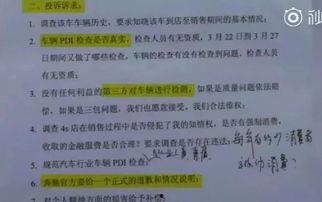 二、投诉诉求：
1. 调查该车车辆历史，要求知晓该车到店至销售期间的基本情况；
2. 车辆 PDI 检查是否真实，检查人员有无资质，3 月 22 日到 3 月 27
日期间又做了哪些检查，车辆的检查有没有检查到问题，检查人员
有无资质；
3. 没有任何利益的第三方对车辆进行检测，如果是质量问题依法赔
偿，如果是三包问题，我们也愿意接受，我们合法维权；
4. 调查 4s 店在销售过程中是否侵犯了我的知情权，是否有强制消费，
收取的金融服务费是否合理？要求调查是否存在违法；
5. 规范汽车行业车辆 PDI 检查；
6. 奔驰官方要给一个正式的道歉和情况说明；
7. 对个人精神方面的损害给予补偿
消费者
消费
秒